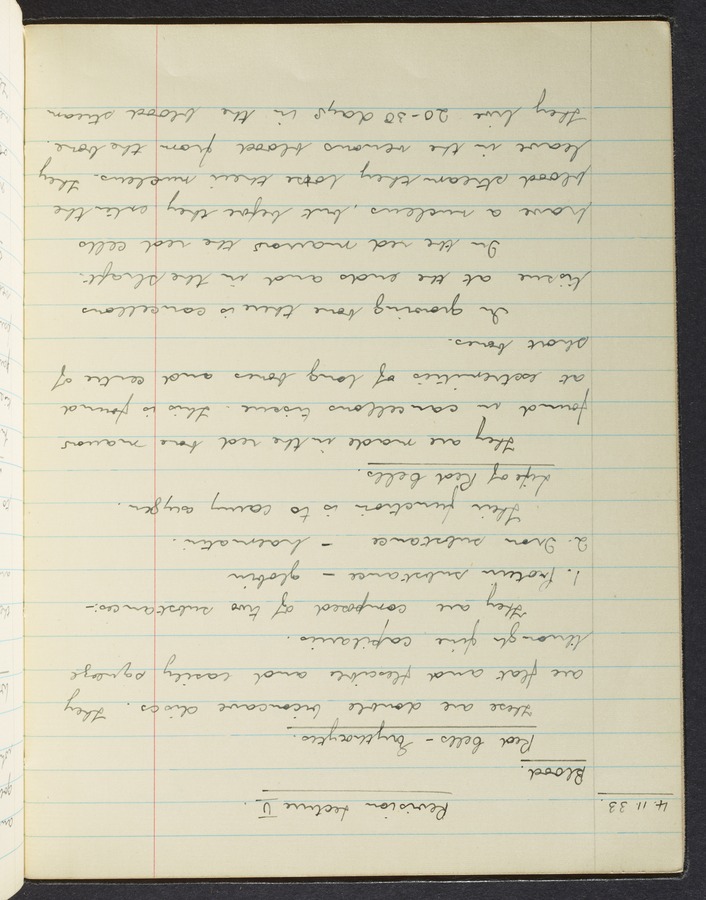 4.11.33.
Revision Lecture V.
Blood.
Red Cells - Erythrocytes.
These are double biconcave discs. They
are flat and flexible and easily squeeze
through fine capillaries.
They are composed of two substances:-
1. Protein substance - globin
2. Iron substance - haematin.
Their function is to carry oxygen.
Life of Red Cells.
They are made in the red bone marrow
found in cancellous tissue. This is found
at extremities of long bones and centre of
short bones.
In growing bone there is cancellous
tissue at the ends and in the shaft.
In the red marrow the red cells
have a nucleus, but before they enter the
blood stream they lose their nucleus. They
leave in the venous blood from the bone.
They live 20-30 days in the blood stream